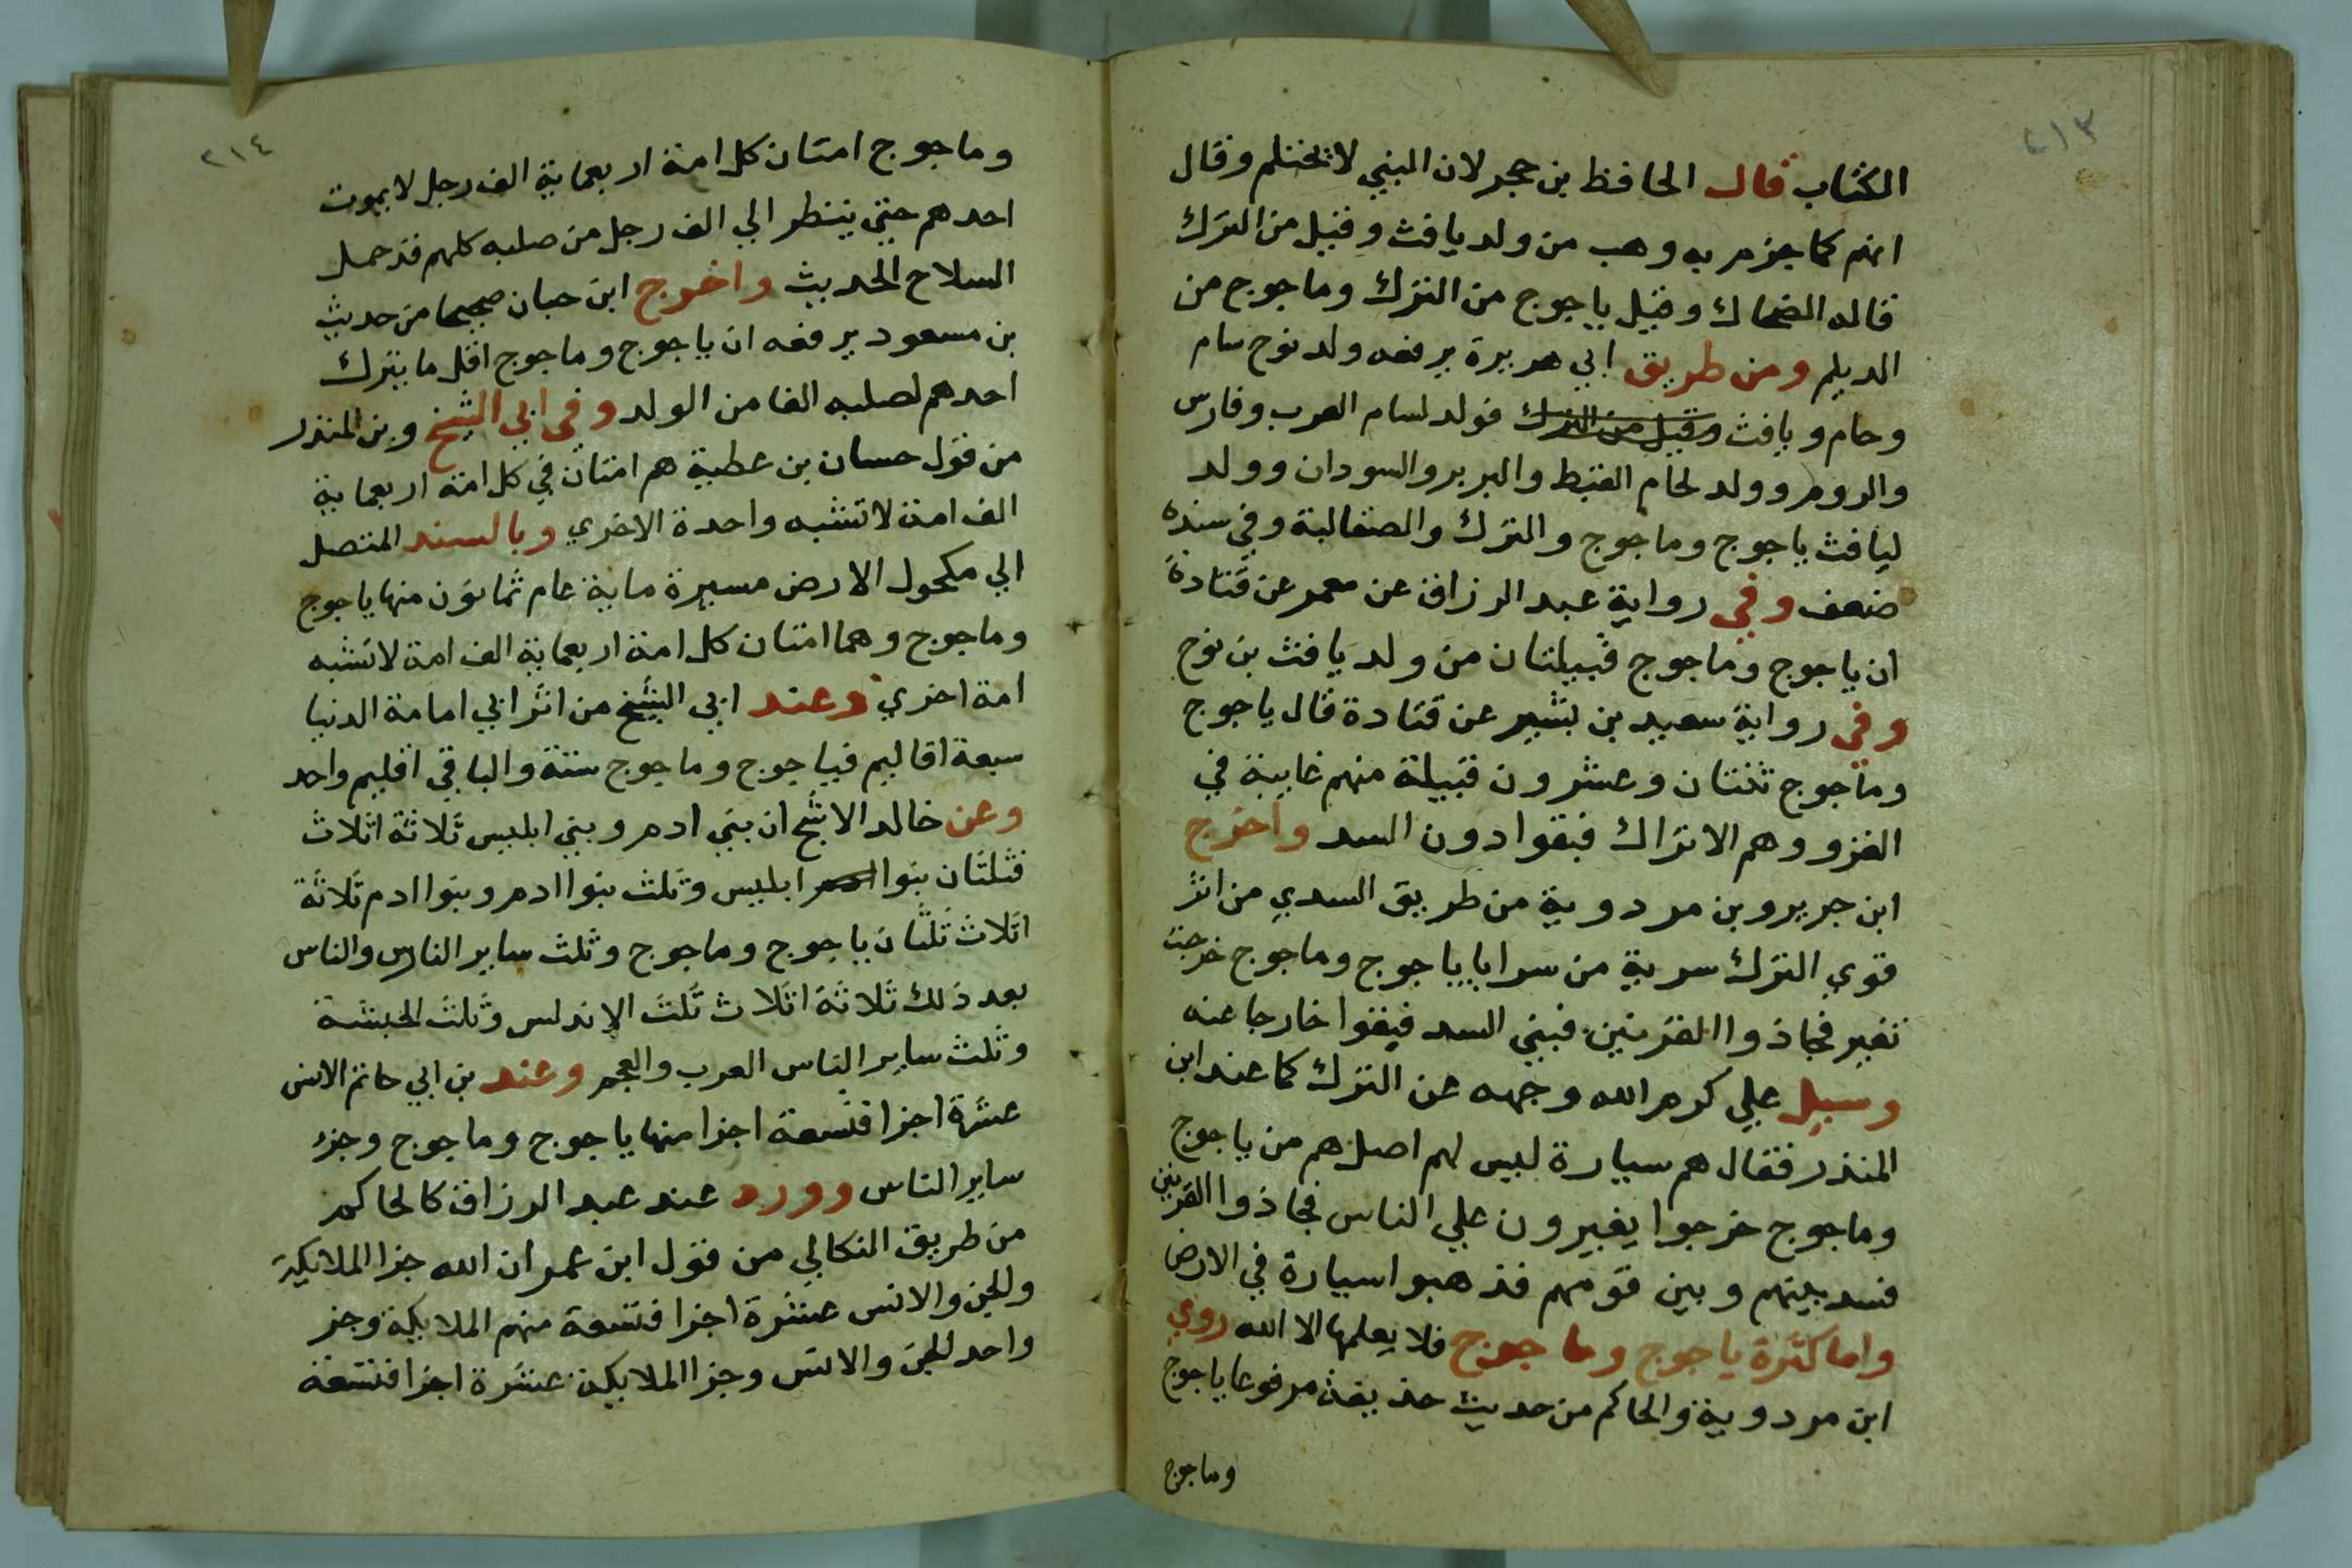 ٢١٣
الكتاب قال الحافظ بن حجر لان النبي لا يختلم وقال
انهم كما جزم به وهب من ولد يافث وقيل من الترك
قاله الضحاك وقيل ياجوج من الترك وماجوج من
الديلم ومن طريق ابي هريرة يرفعه ولد نوح سام
وحام ويافث وقيل من الترك فولد لسام العرب وفارس
والروم وولد لحام القبط والبربر والسودان وولد
ليافث ياجوج وماجوج والترك والصقالبة وفي سنده
ضعف وفي رواية عبد الرزاق عن معمر عن قتادة
ان ياجوج وماجوج قبيلتان من ولد يافث بن نوح
وفي رواية سعيد بن بشير عن قتادة قال ياجوج
وماجوج ثنتان وعشرون قبيلة منهم غايبة في
الغزو وهم الاتراك فبقوا دون السد واخرج
ابن جرير وبن مردوية من طريق السدي من اثر
قوي الترك سرية من سرايا ياجوج وماجوج خرجت
تغير فجاذوا القرنين فبني السد فبقوا خارجا عنه
وسيل علي كرم الله وجهه عن الترك كما عند ابن
المنذر فقال هم سيارة ليس لهم اصل هم من ياجوج
وماجوج خرجوا يغيرون علي الناس فجاذوا القرنين
فسد بينهم وبين قومهم فذهبوا سيارة في الارض
واما كثرة ياجوج وماجوج فلا يعلمها الا الله روي
ابن مردوية والحاكم من حديث حذيفة مرفوعا ياجوج
وماجوج
٢١٤
وماجوج امتان كل امة اربعماية الف رجل لا يموت
احدهم حتي ينظر الي الف رجل من صلبه كلهم قد حمل
السلاح الحديث واخرج ابن حبان صحيحا من حديث
بن مسعود يرفعه ان ياجوج وماجوج اقل ما يترك
احدهم لصلبه الفا من الولد وفي ابي الشيخ وبن المنذر
من قول حسان بن عطية هم امتان في كل امة اربعماية
الف امة لا تشبه واحدة الاخري وبالسند المتصل
الي مكحول الارض مسيرة ماية عام ثمانون منها ياجوج
وماجوج وهما امتان كل امة اربعماية الف امة لا تشبه
امة اخري وعند ابي الشيخ من اثر ابي امامة الدنيا
سبعة اقاليم فياجوج وماجوج ستة والباقي اقليم واحد
وعن خالد الاشج ان بني ادم وبني ابليس ثلاثة اثلاث
فثلثان بنوا ابليس وثلث بنوا ادم وبنوا ادم ثلاثة
اثلاث ثلثان ياجوج وماجوج وثلث ساير الناس والناس
بعد ذلك ثلاثة اثلاث ثلث الاندلس وثلث الحبشة
وثلث ساير الناس العرب والعجم وعند بن ابي حاتم الانس
عشرة اجزا فتسعة اجزا منها ياجوج وماجوج وجزء
ساير الناس وورد عند عبد الرزاق كالحاكم
من طريق النكالي من قول ابن عمر ان الله جزا الملايكة
والجن والانس عشرة اجزا فتسعة منهم الملايكة وجز
واحد للجن والانس وجزا الملايكة عشرة اجزا فتسعة